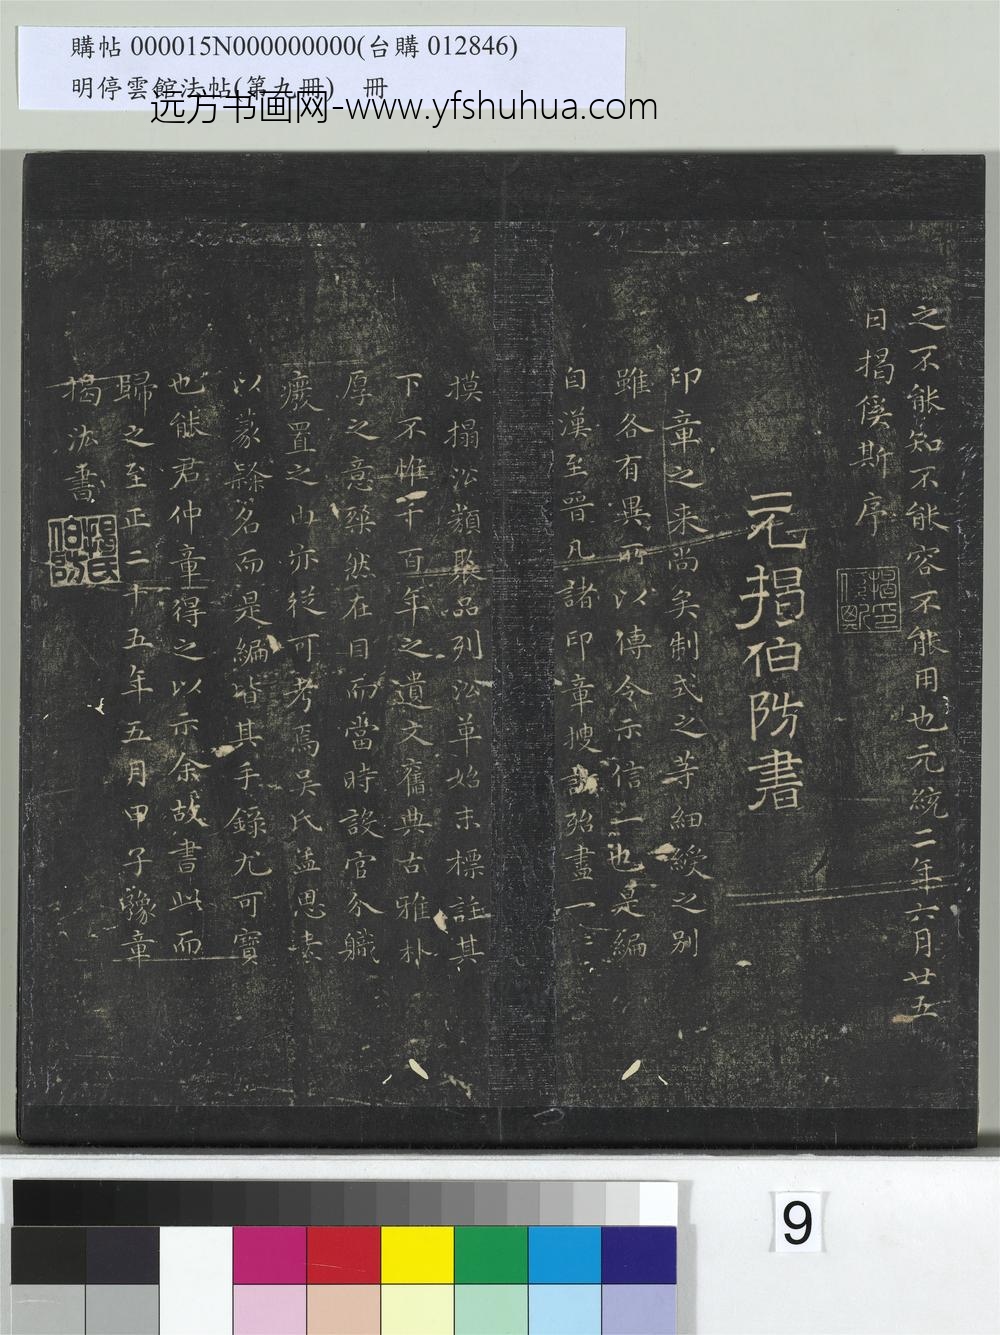 購帖 000015N000000000(台購 012846)
明停雲館法帖(第九冊) 冊
远方书画网-www.yfshuhua.com
之不能知不能容不能用也元統二年六月廿五
日揭傒斯序
元揭伯防書
印章之来尚矣制式之等細綬之別
雖各有異而以傳令示信一也是編
自漢至晉凡諸印章搜訪殆盡一一
摸搨㳂類聚品列㳂革始末標註其
下不惟千百年之遺文舊典古雅朴
厚之意粲然在目而當時設官分職
癈置之由亦從可考焉吳氏孟思素
以篆隸名而是編皆其手錄尤可寶
也能君仲章得之以示余故書此而
歸之至正二十五年五月甲子豫章
揭汯書
揭氏伯防
9